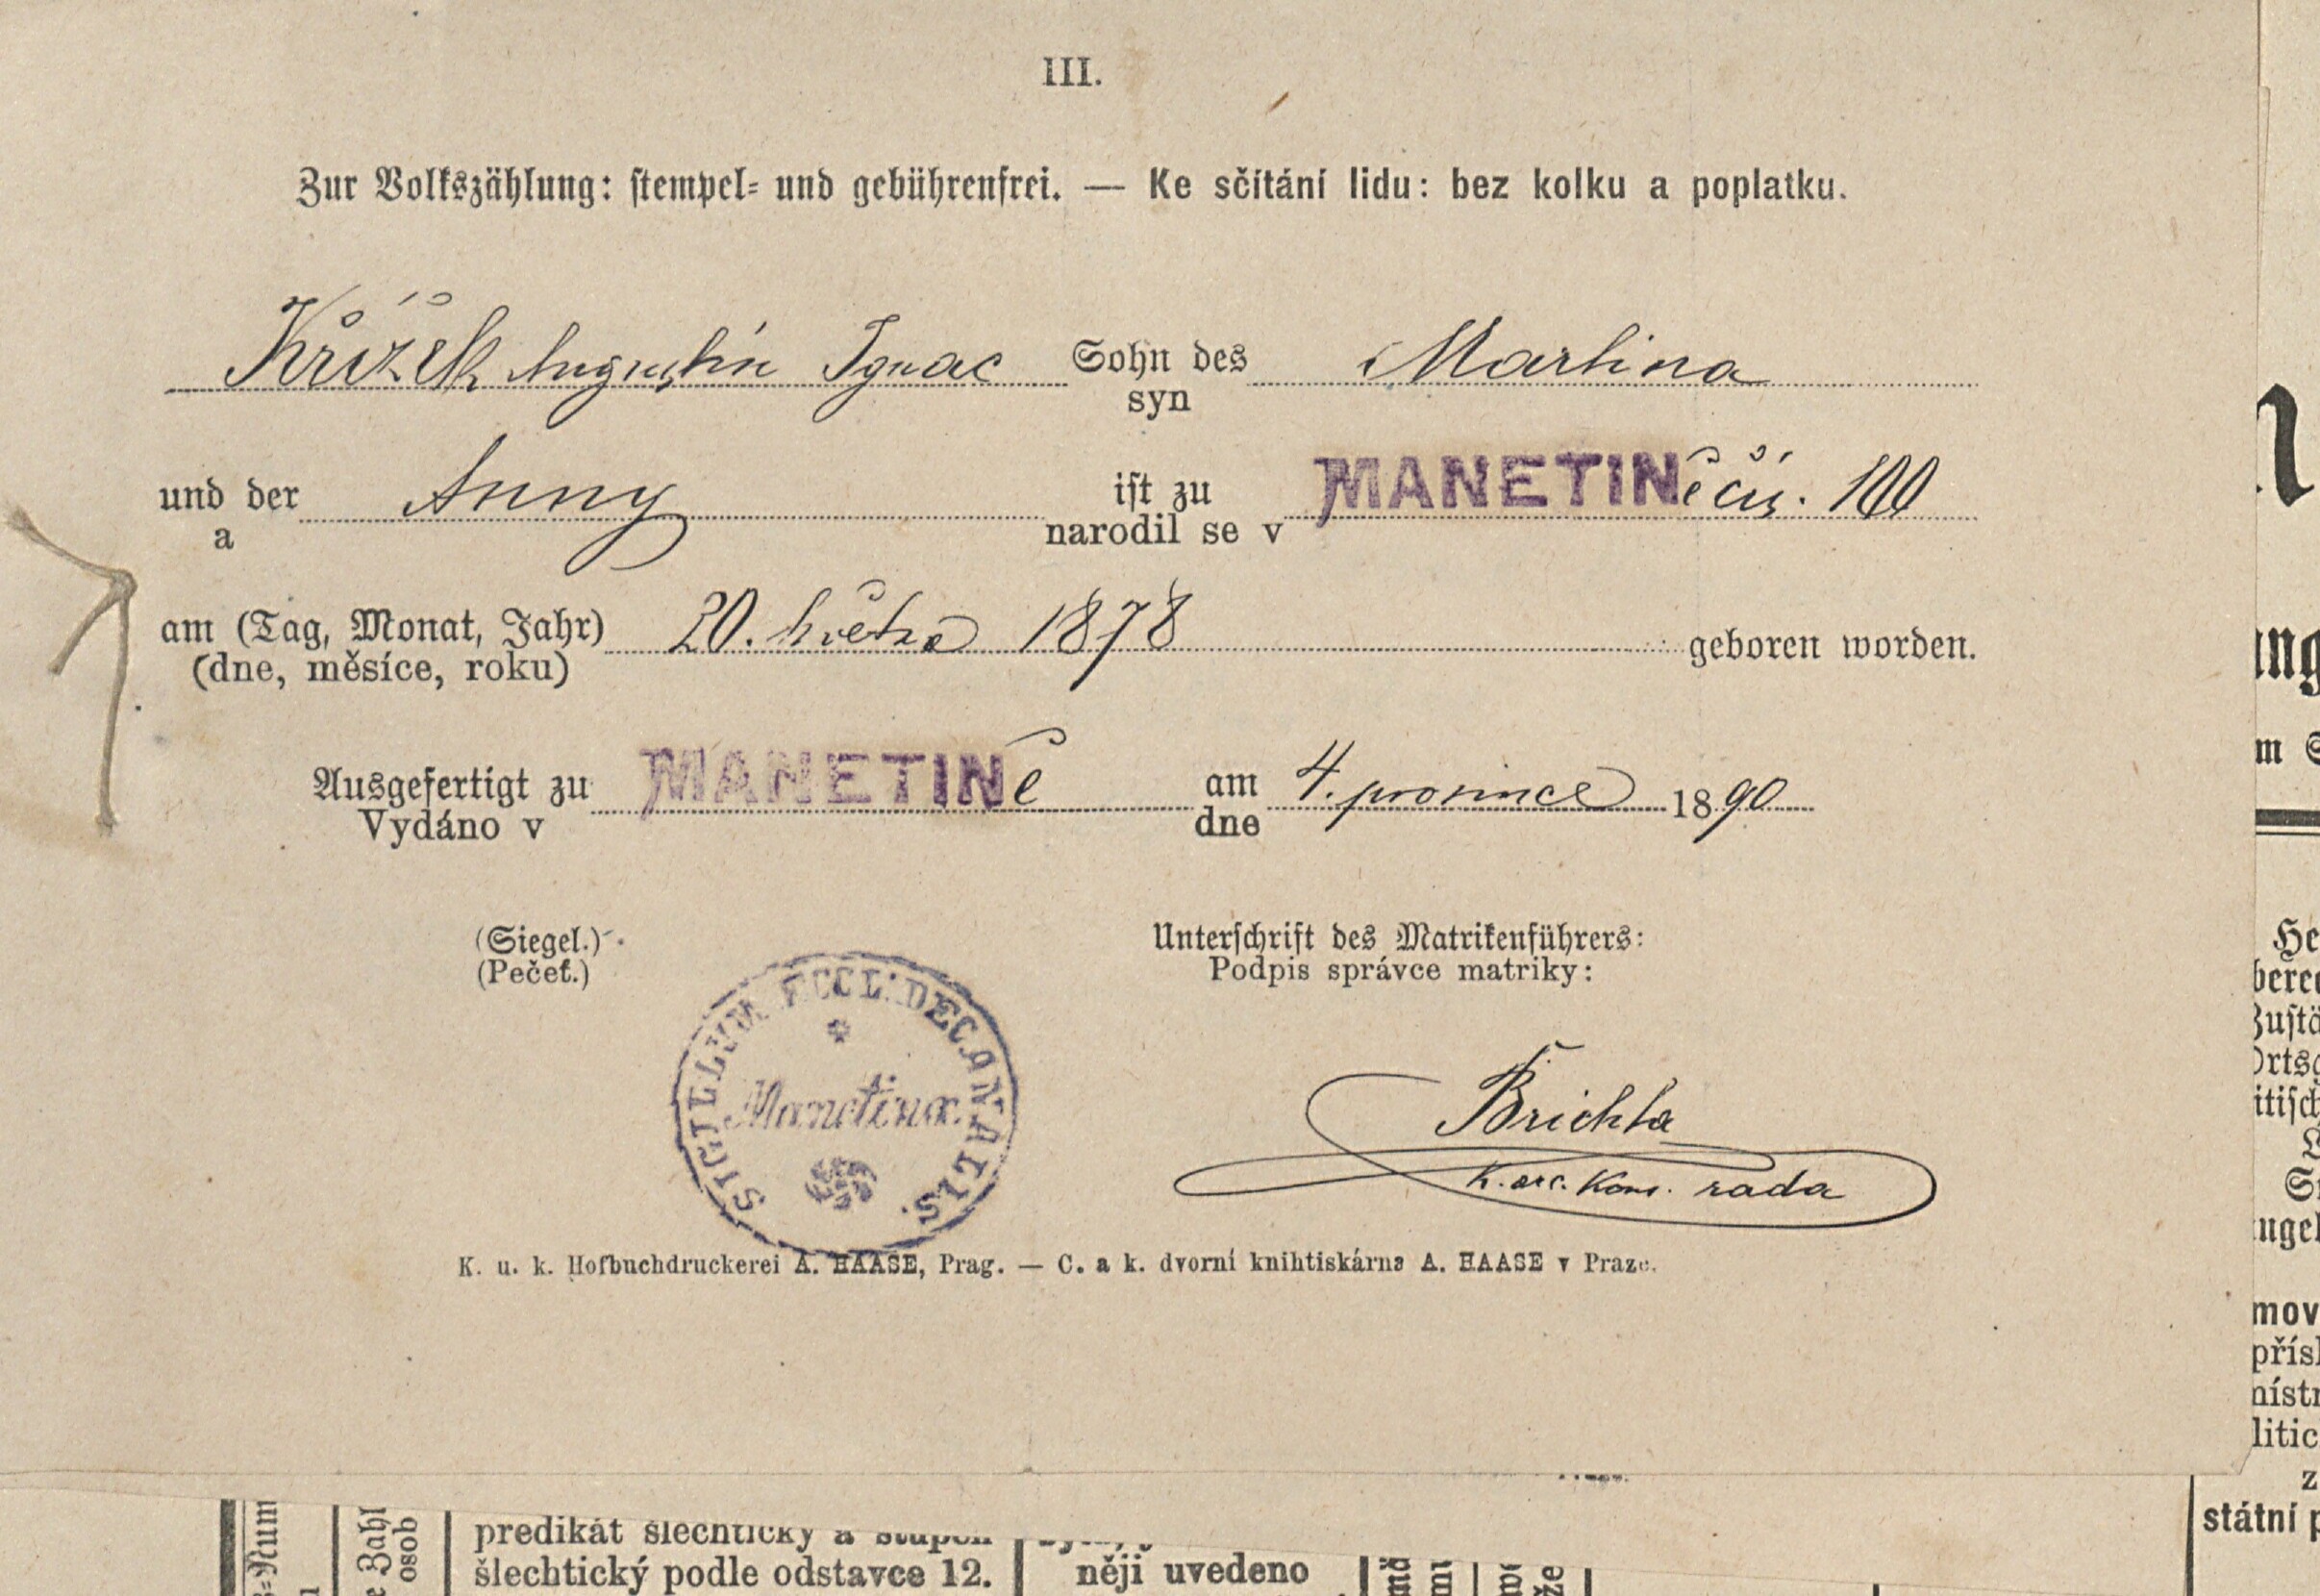 III.
Zur Volkszählung: stempel- und gebührenfrei. — Ke sčítání lidu: bez kolku a poplatku.
Křížek Augustin Ignac Sohn des Martina
syn
und der Anny ist zu MANETINě čís. 100
a narodil se v
am (Tag, Monat, Jahr) 20. května 1878 geboren worden.
(dne, měsíce, roku)
Ausgefertigt zu MANETINě am 4. prosince 1890
Vydáno v dne
(Siegel.) Unterschrift des Matrikenführers:
(Pečeť.) Podpis správce matriky:
SIGILLVM ECCL. DECANALIS
Manetinæ.
Břichta
K. arc. Kons. rada
K. u. k. Hofbuchdruckerei A. HAASE, Prag. — C. a k. dvorní knihtiskárna A. HAASE v Praze.
predikát šlechtický a stupeň
šlechtický podle odstavce 12.
něji uvedeno
osob
státní